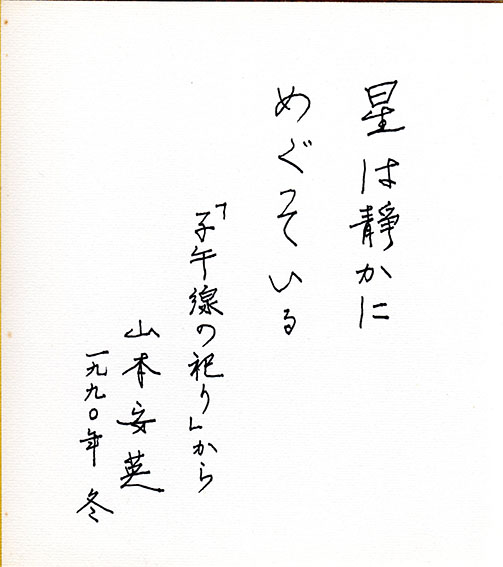 星は靜かに
めぐっている
「子午線の祀り」から
山本安英
一九九〇年 冬